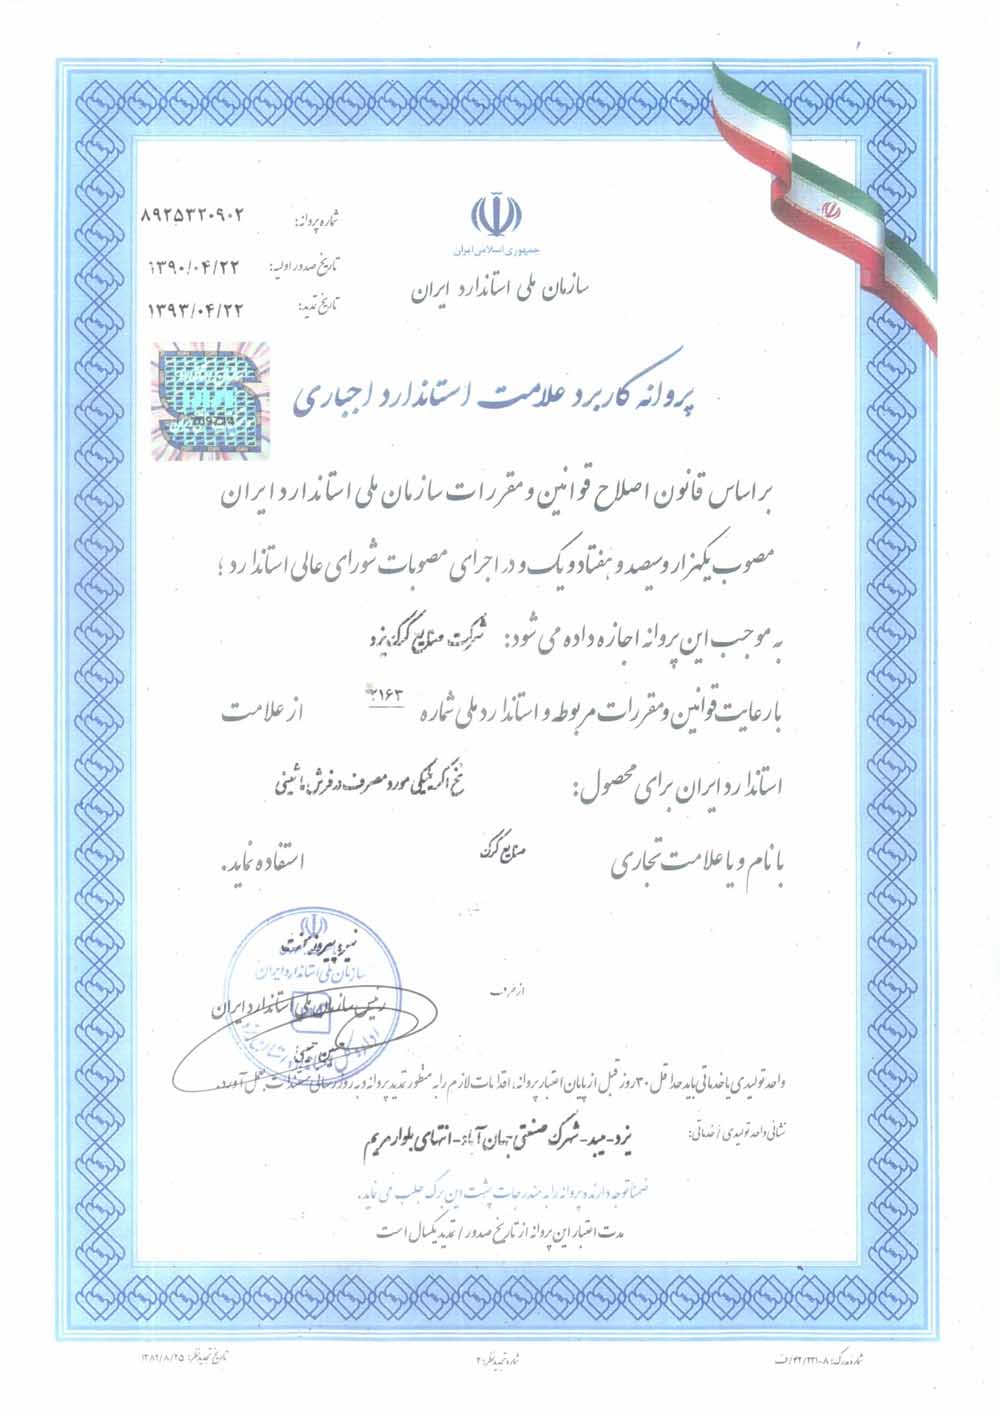 جمهوری اسلامی ایران
سازمان ملی استاندارد ایران
شماره پروانه: ۸۹۲۵۳۲۰۹۰۲
تاریخ صدور اولیه: ۱۳۹۰/۰۴/۲۲
تاریخ تمدید: ۱۳۹۳/۰۴/۲۲
پروانه کاربرد علامت استاندارد اجباری
بر اساس قانون اصلاح قوانین و مقررات سازمان ملی استاندارد ایران
مصوب یکهزار و سیصد و هفتاد و یک و در اجرای مصوبات شورای عالی استاندارد ؛
به موجب این پروانه اجازه داده می شود: شرکت صنایع کرک یزد
با رعایت قوانین و مقررات مربوطه و استاندارد ملی شماره ۲۱۶۳ از علامت
استاندارد ایران برای محصول: نخ اکریلیکی مورد مصرف در فرش ماشینی
با نام و یا علامت تجاری صنایع کرک استفاده نماید.
نیره پیروزبخت
سازمان ملی استاندارد ایران
از طرف
رئیس سازمان ملی استاندارد ایران
واحد تولیدی یا خدماتی باید حداقل ۳۰ روز قبل از پایان اعتبار پروانه، اقدامات لازم را به منظور تمدید پروانه و به روز رسانی مستندات بعمل آورد.
نشانی واحد تولیدی / خدماتی: یزد-میبد-شهرک صنعتی جهان آباد-انتهای بلوار مریم
ضمنا توجه دارنده پروانه را به مندرجات پشت این برگ جلب می نماید.
مدت اعتبار این پروانه از تاریخ صدور / تمدید یکسال است
شماره مدرک: ف/۴۲/۲۲۱۰۸
شماره تجدیدنظر: ۲
تاریخ تجدیدنظر: ۱۳۸۹/۸/۲۵